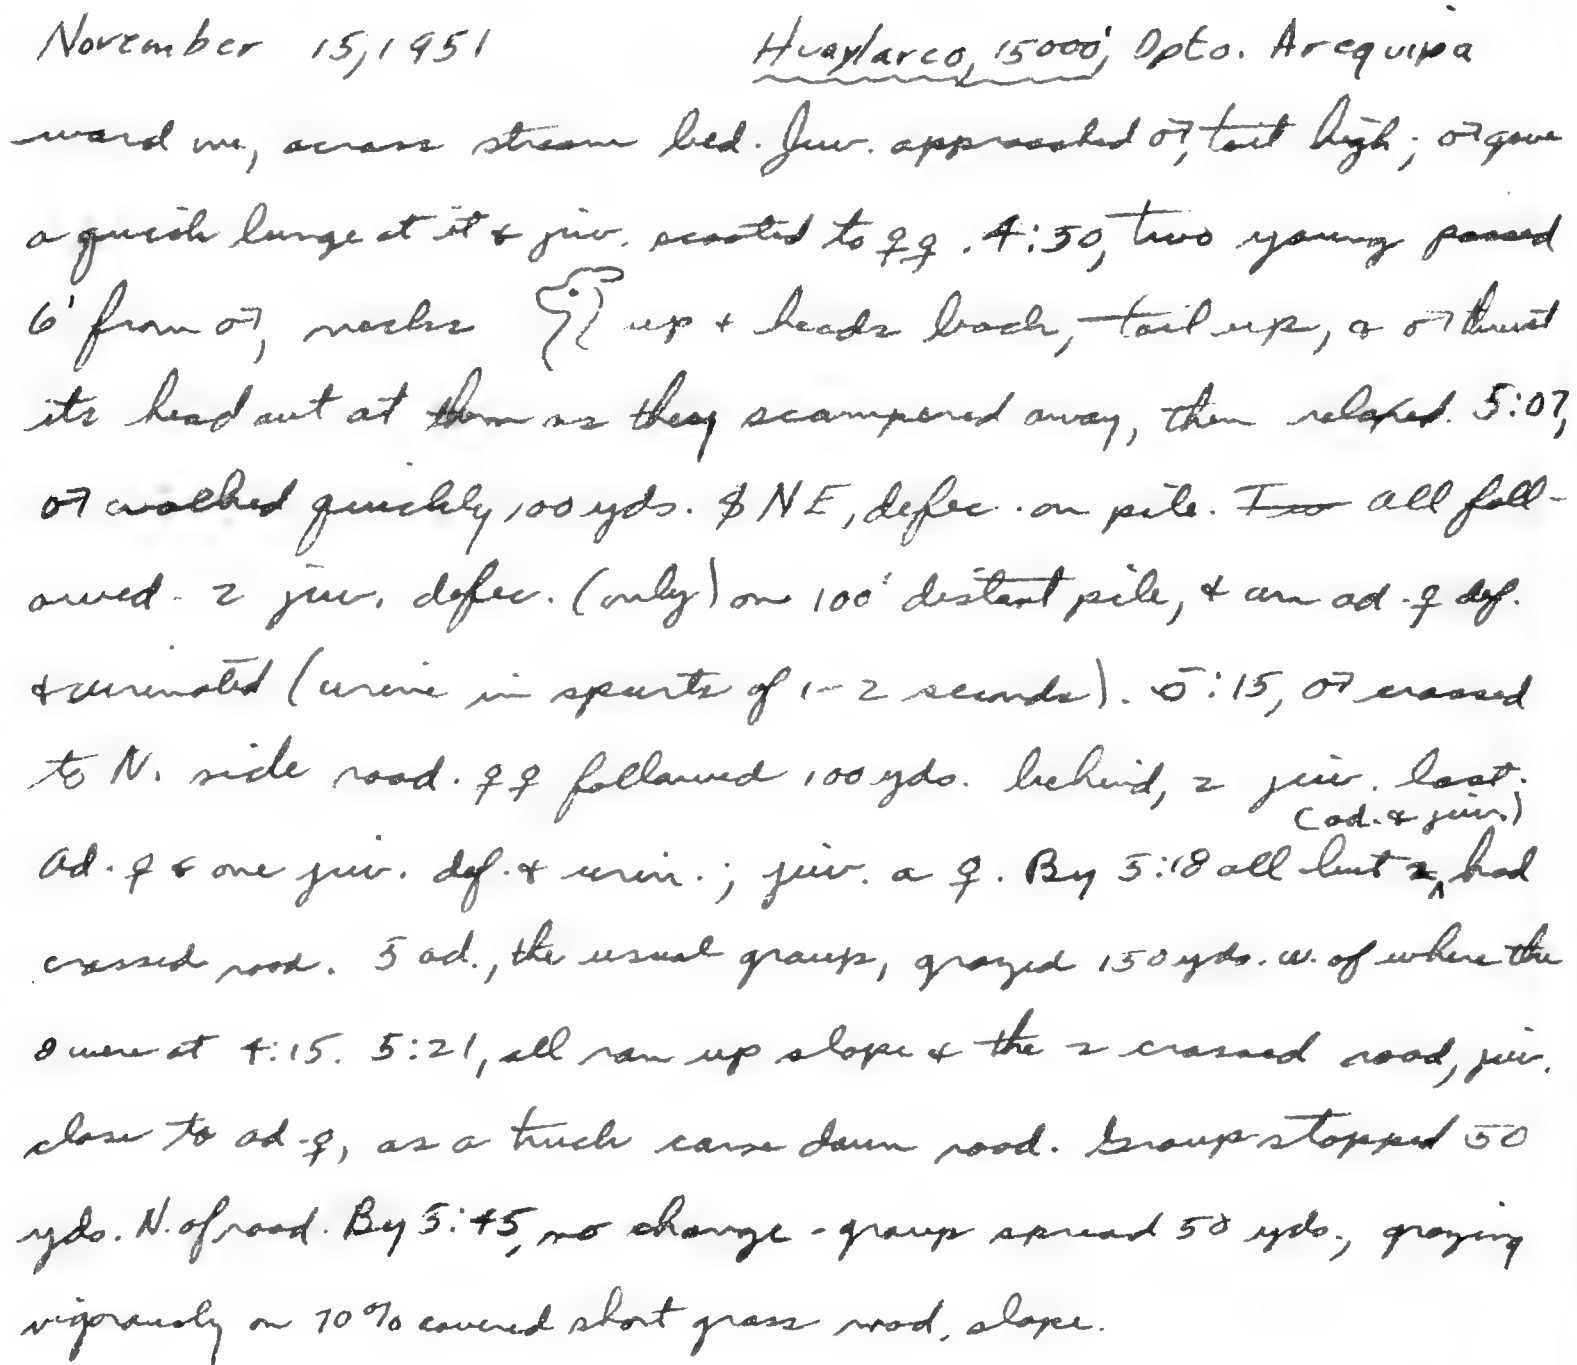 November 15, 1951 Huaylarco, 15000', Dpto. Arequipa
ward me, across stream bed. Juv. approached ♂, tail high; ♂ gave
a quick lunge at it & juv. scooted to ♀♀. 4:50, two young passed
6' from ♂, necks up & heads back, tail up, & ♂ thrust
its head out at them as they scampered away, then relaxed. 5:07,
♂ walked quickly 100 yds. NE, defec. on pile. All foll-
owed - 2 juv. defec. (only) on 100' distant pile, & an ad. ♀ def.
& urinated (urine in spurts of 1-2 seconds). 5:15, ♂ crossed
to N. side road. ♀♀ followed 100 yds. behind, 2 juv. last.
Ad. ♀ & one juv. def. & urin.; juv. a ♀. By 5:18 all but 2 (ad. & juv.) had
crossed road. 5 ad., the usual group, grazed 150 yds. w. of where the
8 were at 4:15. 5:21, all ran up slope & the 2 crossed road, juv.
close to ad. ♀, as a truck came down road. Group stopped 50
yds. N. of road. By 5:45, no change - group spread 50 yds., grazing
vigorously on 70% covered short grass mod. slope.